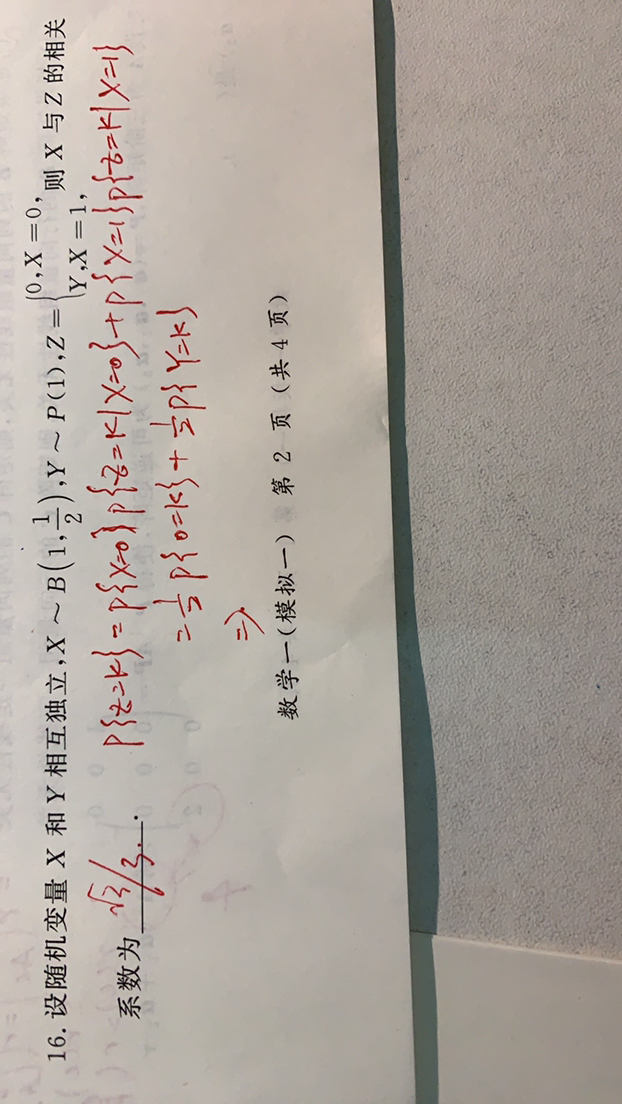 16. 设随机变量 X 和 Y 相互独立,X ~ B(1,1/2),Y ~ P(1),Z = {0,X=0, Y,X=1, 则 X 与 Z 的相关
系数为 √3/3.
P{z=k}=P{X=0}P{z=k|X=0}+P{X=1}P{z=k|X=1}
=1/2 P{0=k}+1/2 P{Y=k}
⇒
数学一(模拟一) 第 2 页(共 4 页)